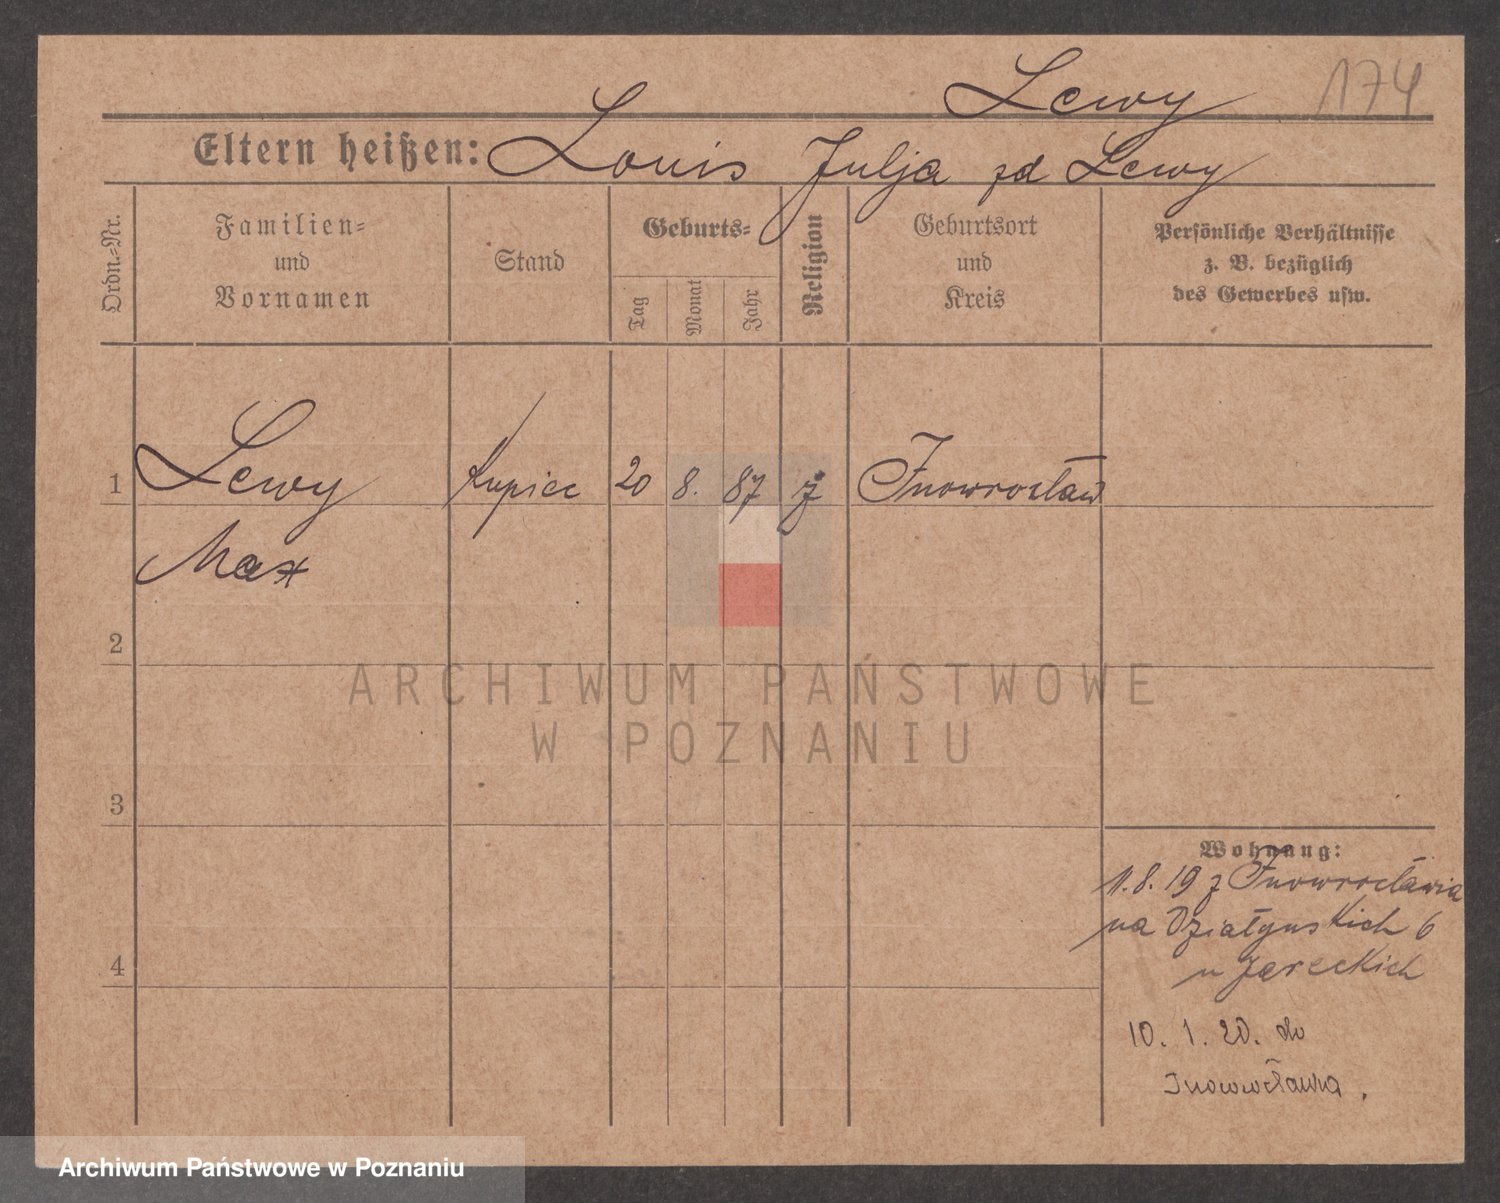 Lewy 174
Eltern heißen: Louis Julja zd Lewy
Ordn.=Nr.
Familien=
und
Vornamen
Stand
Geburts=
Tag
Monat
Jahr
Religion
Geburtsort
und
Kreis
Persönliche Verhältnisse
z. B. bezüglich
des Gewerbes usw.
1 Lewy Kupiec 20 8. 87 ż Inowrocław
Max
2
3
4
Wohnung:
11.8.19 z Inowrocławia
na Działynskich 6
u Jareckich
10. 1. 20. do
Inowrocławia.
ARCHIWUM PAŃSTWOWE
W POZNANIU
Archiwum Państwowe w Poznaniu